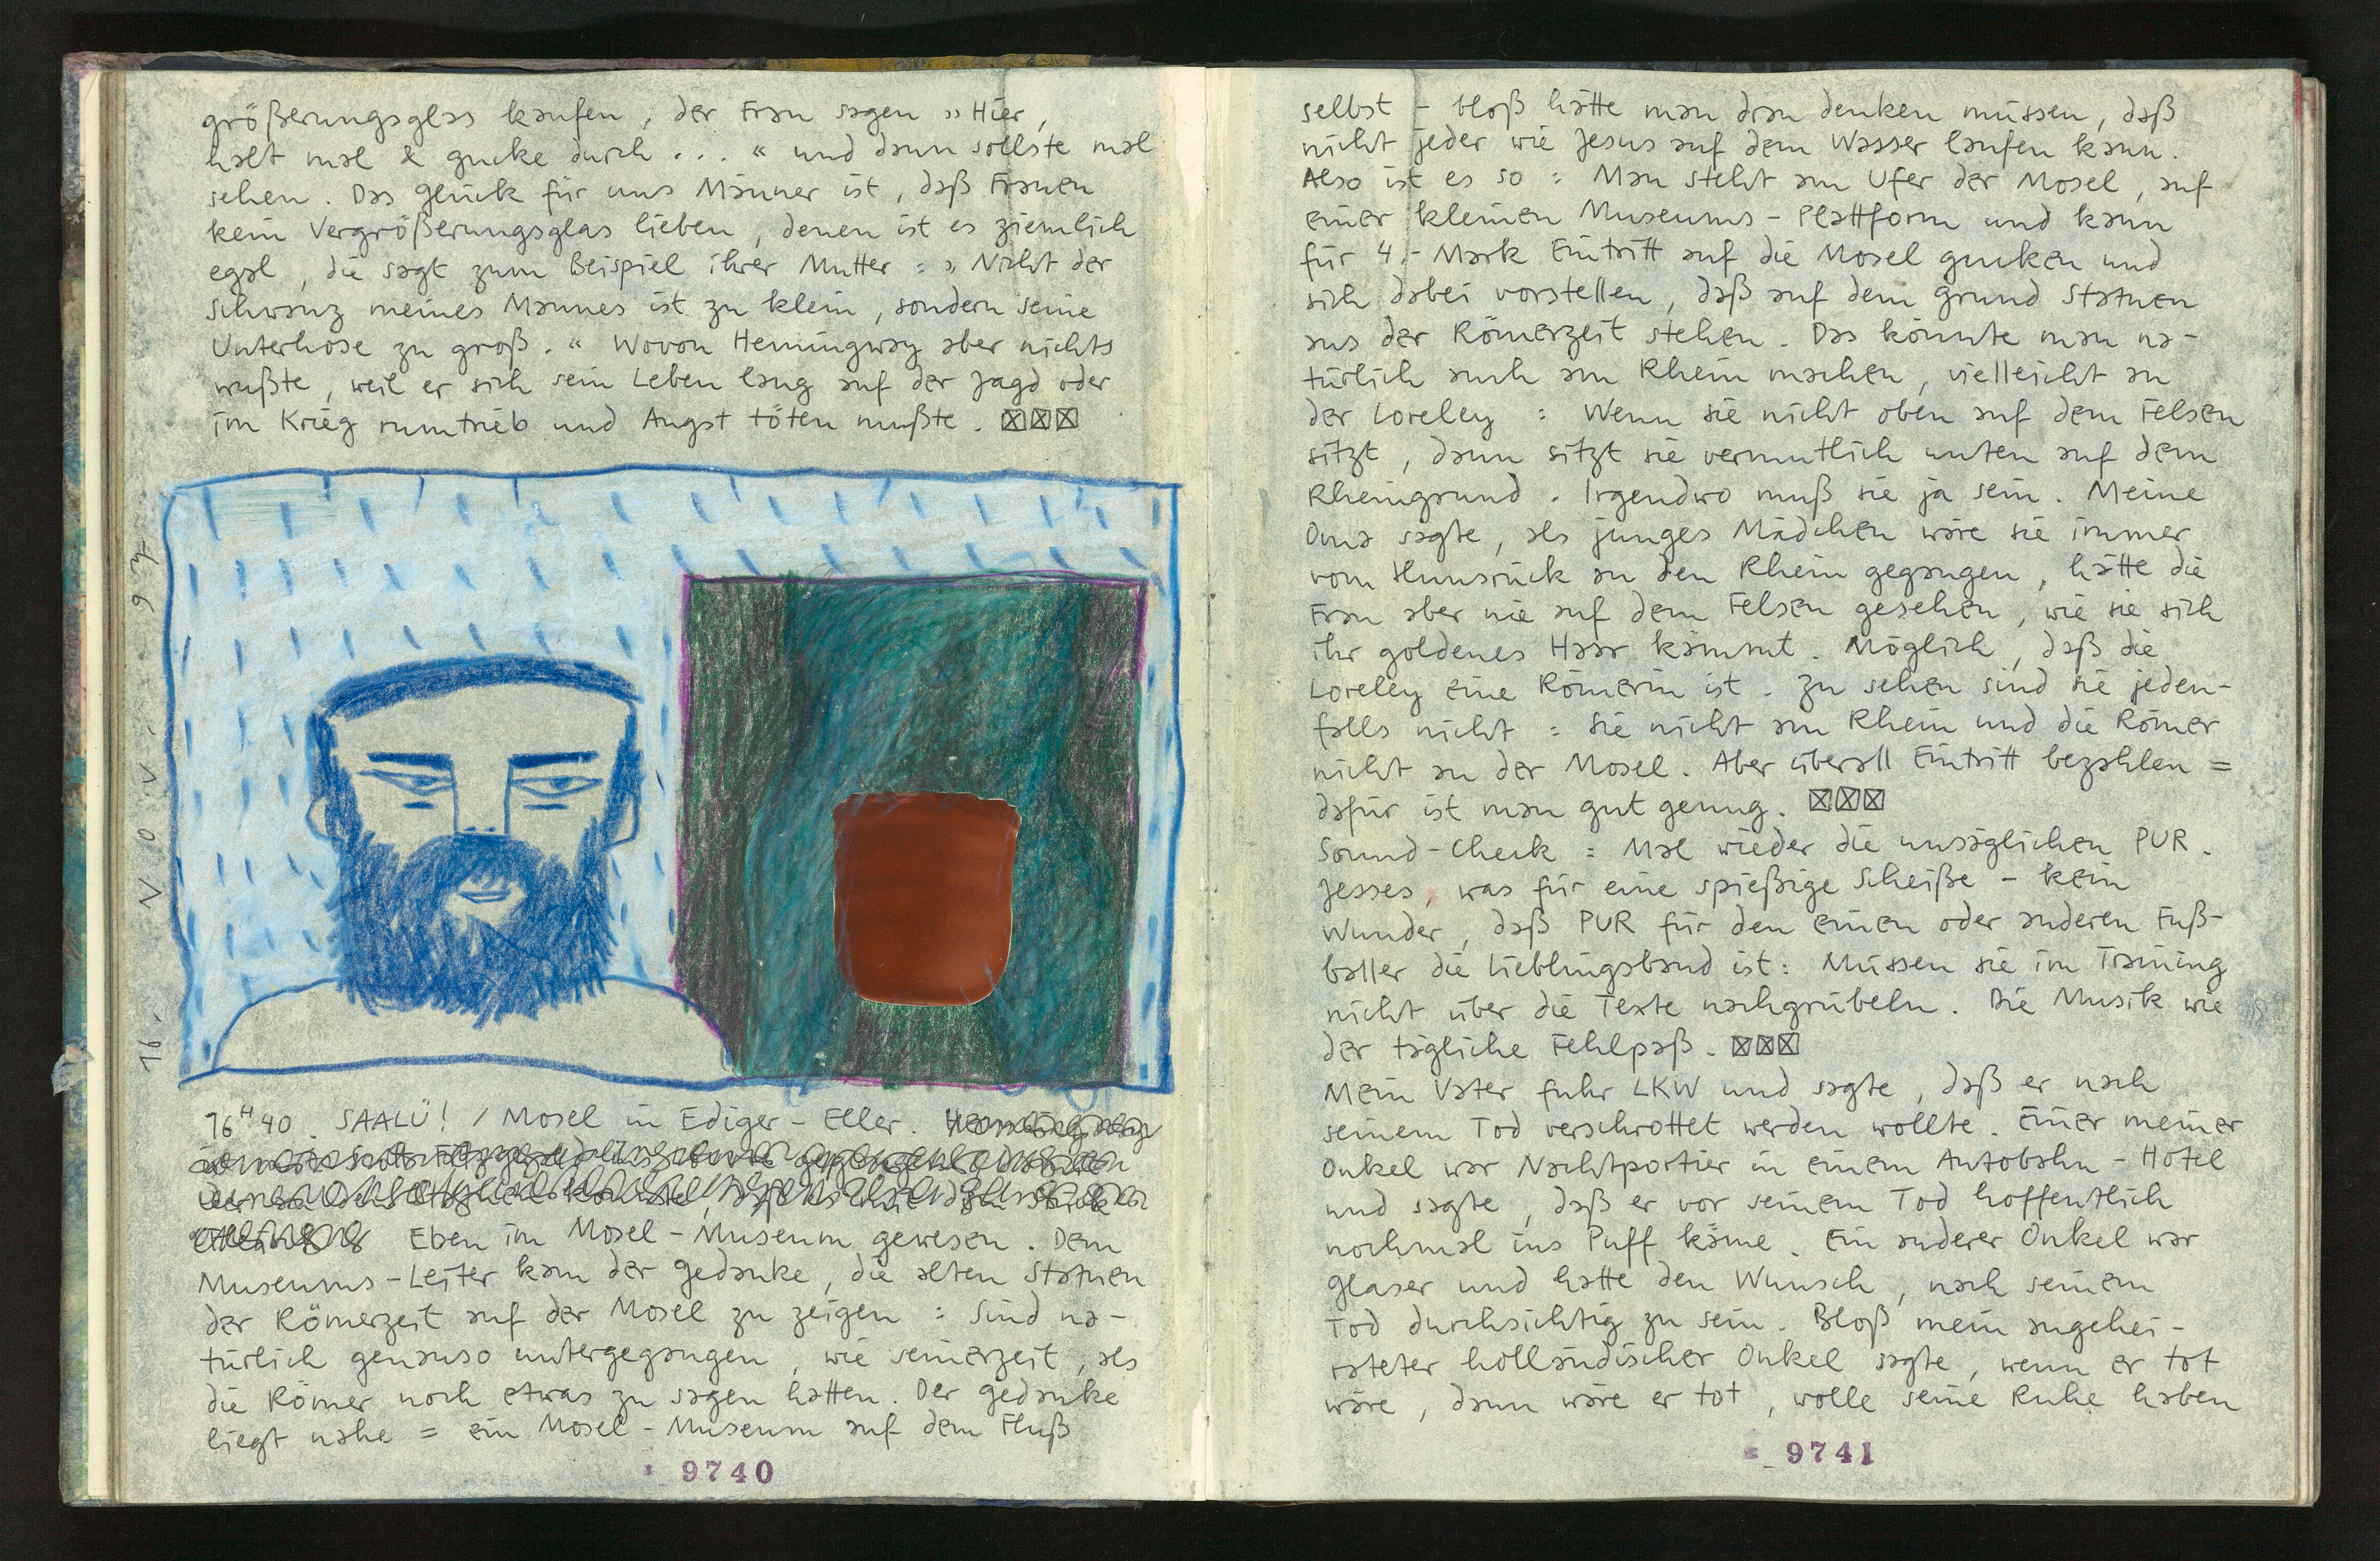 größerungsglas kaufen, der Frau sagen „Hier,
halt mal & gucke durch ... “ und dann sollste mal
sehen. Das Glück für uns Männer ist, daß Frauen
kein Vergrößerungsglas lieben, denen ist es ziemlich
egal, die sagt zum Beispiel ihrer Mutter: „Nicht der
Schwanz meines Mannes ist zu klein, sondern seine
Unterhose zu groß.“ Wovon Hemingway aber nichts
wußte, weil er sich sein Leben lang auf der Jagd oder
im Krieg rumtrieb und Angst töten mußte. ☒☒☒
16. NOV. 97
16ᴴ40. SAALÜ! / Mosel in Ediger-Eller.
Eben im Mosel-Museum gewesen. Dem
Museums-Leiter kam der Gedanke, die alten Statuen
der Römerzeit auf der Mosel zu zeigen: Sind na-
türlich genauso untergegangen, wie seinerzeit, als
die Römer noch etwas zu sagen hatten. Der Gedanke
liegt nahe = ein Mosel-Museum auf dem Fluß
9740
selbst – bloß hätte man dran denken müssen, daß
nicht jeder wie Jesus auf dem Wasser laufen kann.
Also ist es so: Man steht am Ufer der Mosel, auf
einer kleinen Museums-Plattform und kann
für 4,- Mark Eintritt auf die Mosel gucken und
sich dabei vorstellen, daß auf dem Grund Statuen
aus der Römerzeit stehen. Das könnte man na-
türlich auch am Rhein machen, vielleicht an
der Loreley: Wenn sie nicht oben auf dem Felsen
sitzt, dann sitzt sie vermutlich unten auf dem
Rheingrund. Irgendwo muß sie ja sein. Meine
Oma sagte, als junges Mädchen wäre sie immer
vom Hunsrück an den Rhein gegangen, hätte die
Frau aber nie auf dem Felsen gesehen, wie sie sich
ihr goldenes Haar kämmt. Möglich, daß die
Loreley eine Römerin ist. Zu sehen sind sie jeden-
falls nicht: Sie nicht am Rhein und die Römer
nicht an der Mosel. Aber überall Eintritt bezahlen =
dafür ist man gut genug. ☒☒☒
Sound-Check: Mal wieder die unsäglichen PUR.
Jesses, was für eine spießige Scheiße – kein
Wunder, daß PUR für den einen oder anderen Fuß-
baller die Lieblingsband ist: Müssen sie im Training
nicht über die Texte nachgrübeln. Die Musik wie
der tägliche Fehlpaß. ☒☒☒
Mein Vater fuhr LKW und sagte, daß er nach
seinem Tod verschrottet werden wollte. Einer meiner
Onkel war Nachtportier in einem Autobahn-Hotel
und sagte, daß er vor seinem Tod hoffentlich
nochmal ins Puff käme. Ein anderer Onkel war
Glaser und hatte den Wunsch, nach seinem
Tod durchsichtig zu sein. Bloß mein angehei-
rateter holländischer Onkel sagte, wenn er tot
wäre, dann wäre er tot, wolle seine Ruhe haben
9741